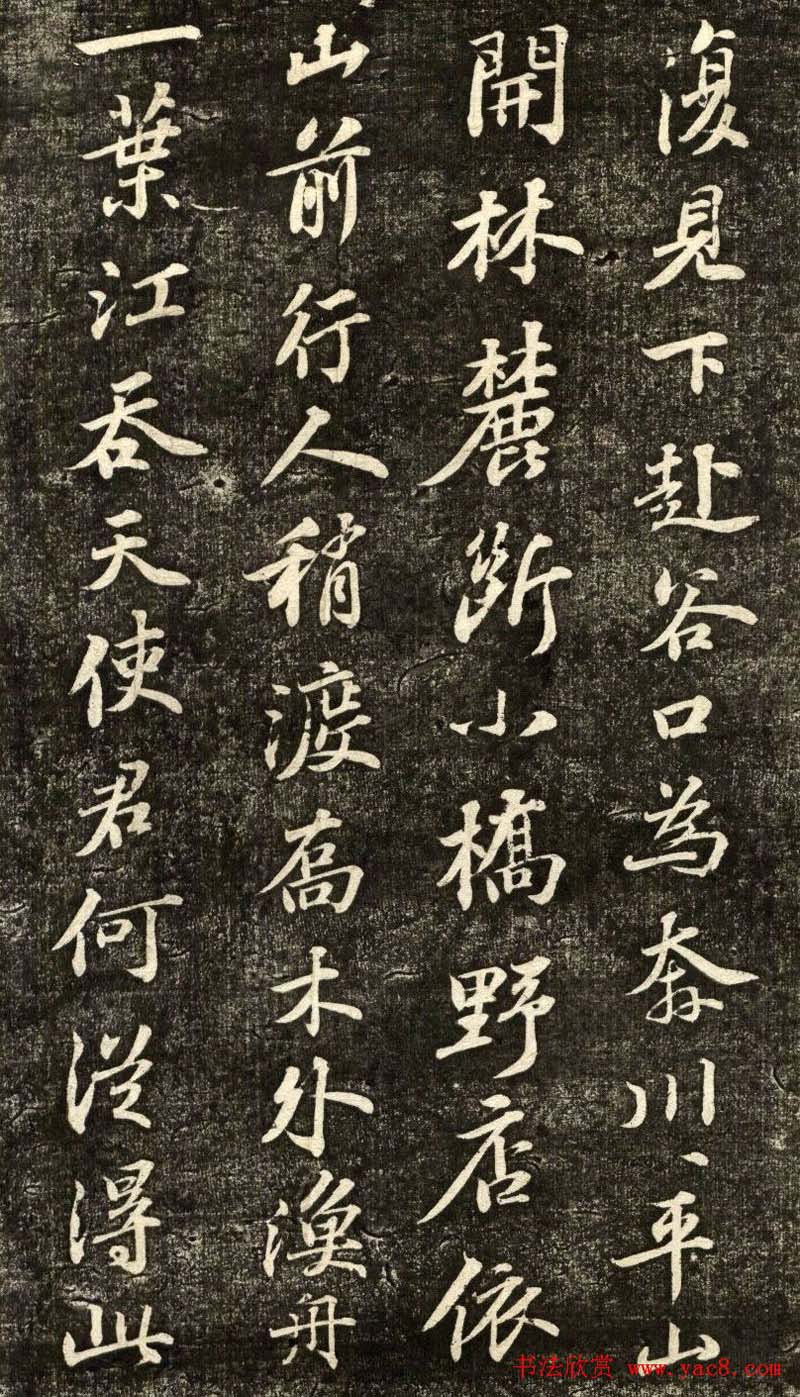 復見下赴谷口為奔川川平山
開林麓斷小橋野店依
山前行人稍渡喬木外漁舟
一葉江吞天使君何從得此
书法欣赏 www.yac8.com